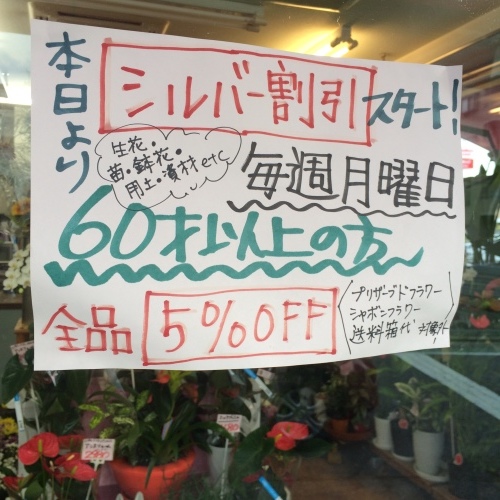 本日より
シルバー割引
スタート!
生花・
苗・鉢花・
用土・資材etc
毎週月曜日
60才以上の方
全品
5%OFF
プリザーブドフラワー
シャボンフラワー
送料箱代 対象外!